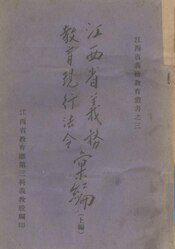 江西省義務教育叢書之三
江西省義務
教育現行法令
彙編
(上編)
江西省教育廳第三科義教股編印